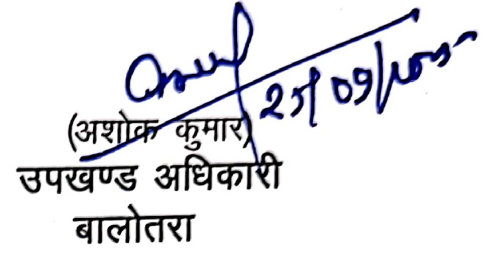 (अशोक कुमार)
उपखण्ड अधिकारी
बालोतरा